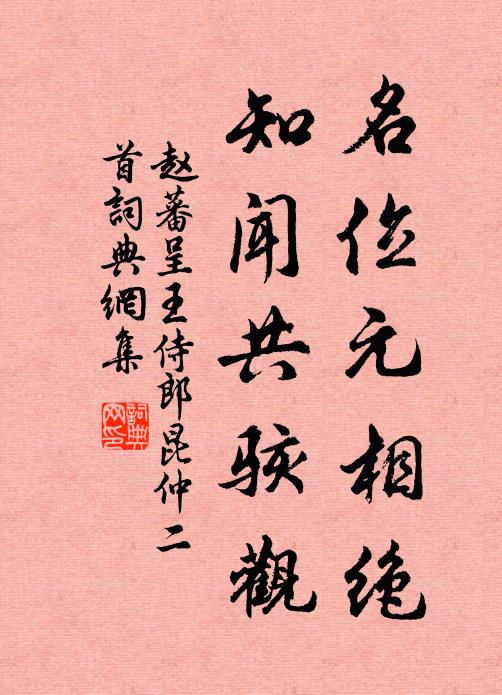 名位元相绝
知闻共骇觀
赵蕃呈王侍郎昆仲二
首詞典網集
詞典网印